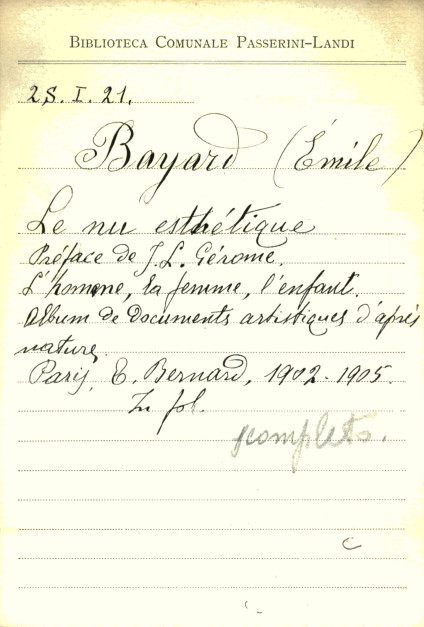 BIBLIOTECA COMUNALE PASSERINI-LANDI
2S. I. 21.
Bayard (Émile)
Le nu esthétique
Préface de J. L. Gérome.
L'homme, la femme, l'enfant.
Album de Documents artistiques d'après
nature.
Paris, E. Bernard, 1902-1905.
In fol.